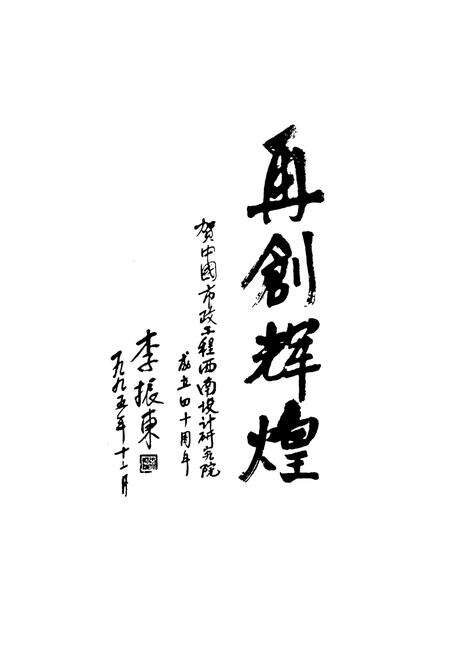 再創辉煌
贺中國市政工程西南设计研究院
成立四十周年
李振東
一九九五年十二月